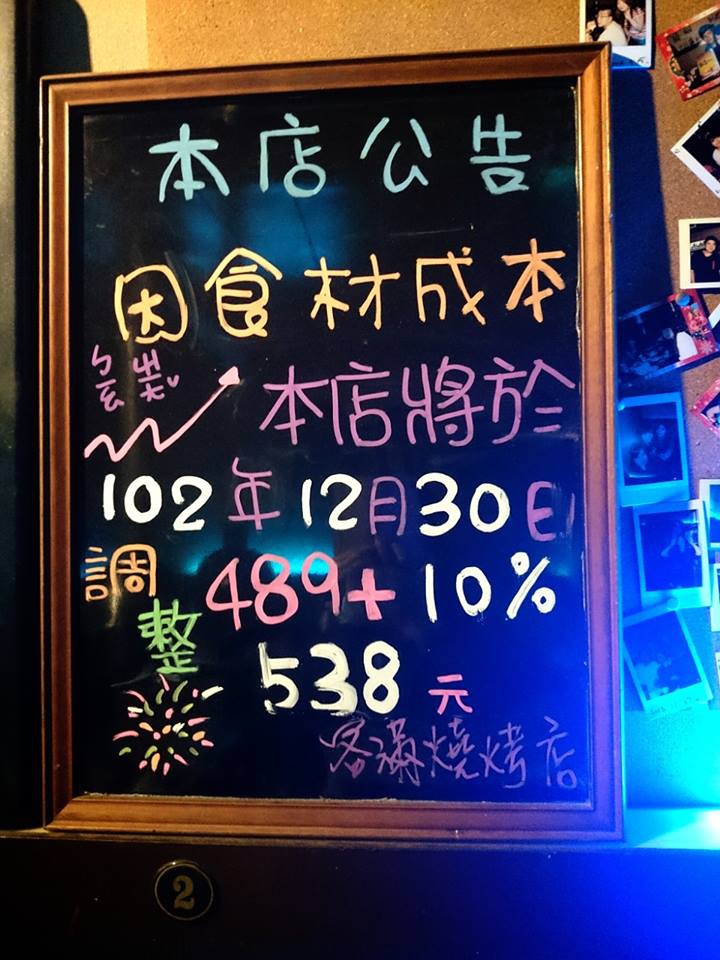 本店公告
因食材成本
本店將於
102年12月30日
調整
489+10%
538元
客滿燒烤店
2